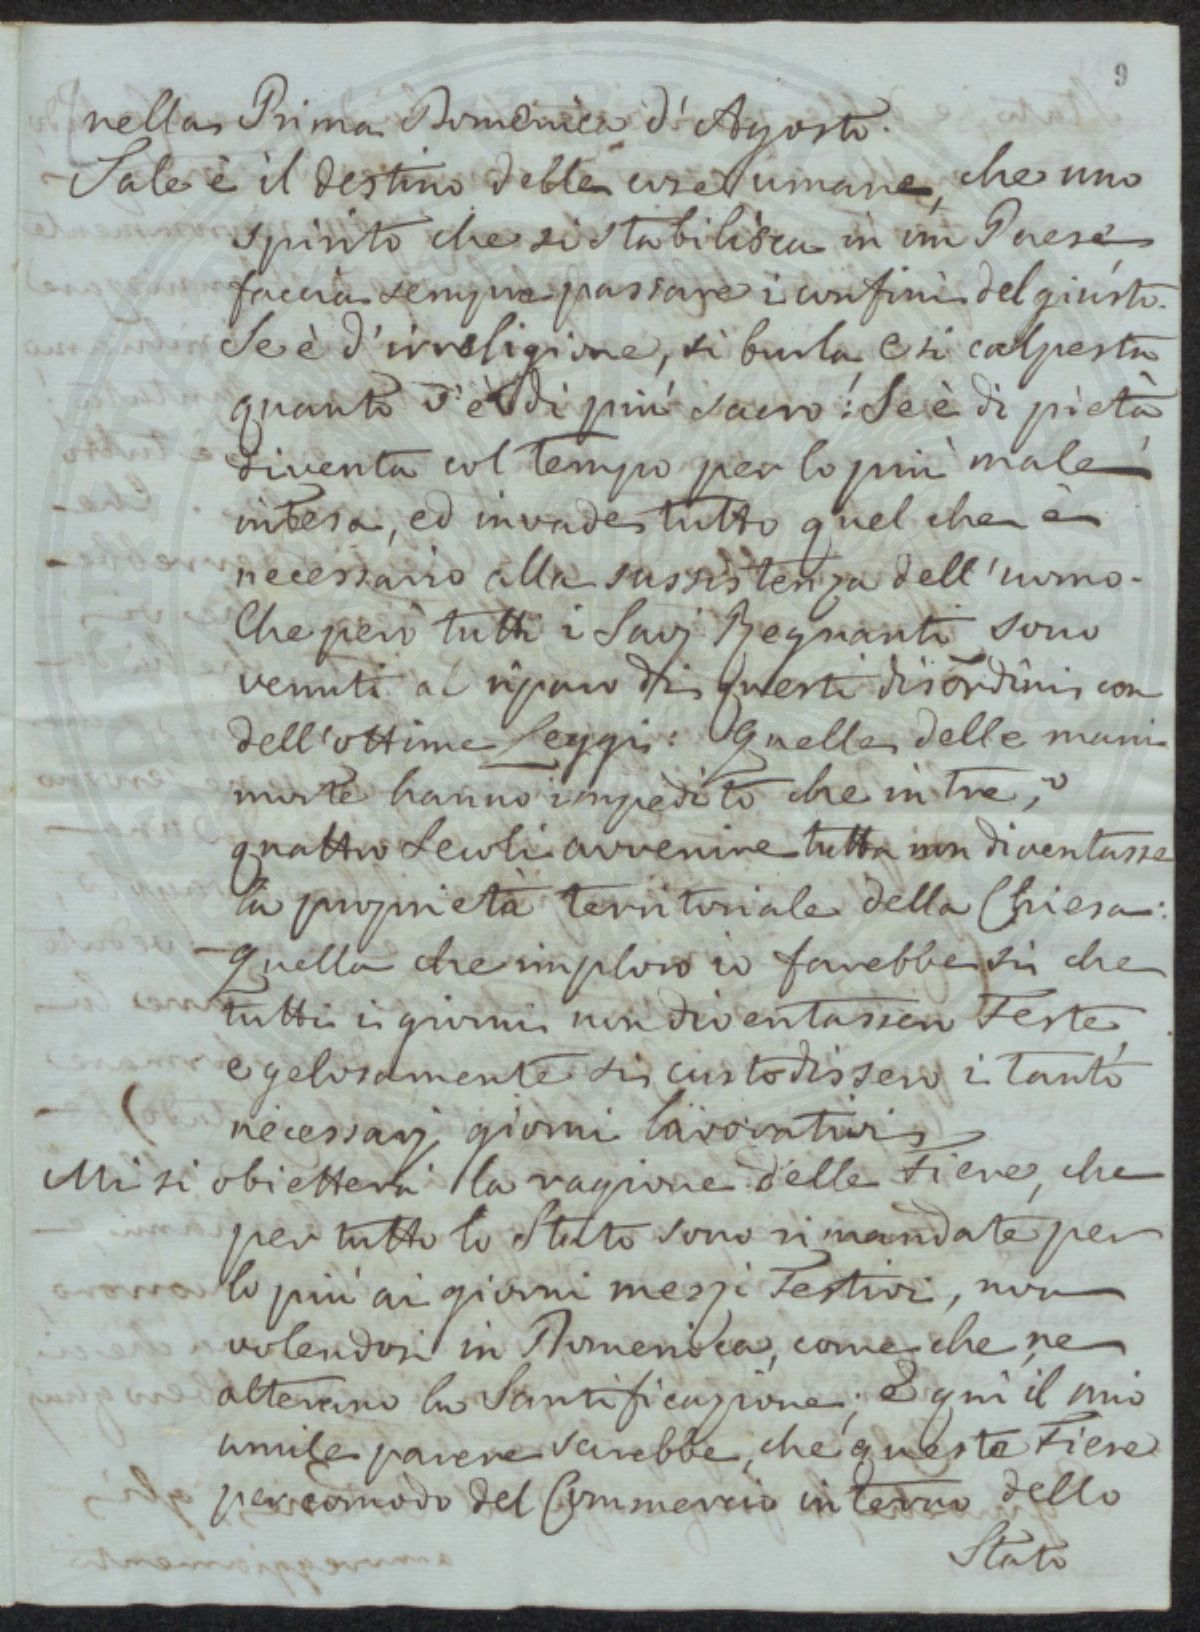 9
nella Prima Domenica d'Agosto.
Tale è il destino delle cose umane, che uno
spirito che si stabilisca in un Paese
faccia sempre passare i confini del giusto.
Se è d'irreligione, si burla, e si calpesta
quanto v'è di più sacro! Se è di pietà
diventa col tempo per lo più male
intesa, ed invade tutto quel che è
necessario alla sussistenza dell'uomo.
Che però tutti i Savj Regnanti sono
venuti al riparo di questi disordini con
dell'ottime Leggi: Quelle delle mani
morte hanno impedito che in tre, o
quattro Secoli avvenire tutta non diventasse
la proprietà territoriale della Chiesa:
Quella che imploro io farebbe sì che
tutti i giorni non diventassero Feste,
e gelosamente si custodissero i tanto
necessarj giorni lavorativi
Mi si obietterà la ragione delle Fiere, che
per tutto lo Stato sono rimandate per
lo più ai giorni mezzi Festivi, non
volendosi in Domenica, come che ne
alterano la Santificazione; e quì il mio
umile parere sarebbe, che queste Fiere
per comodo del Commercio interno dello
Stato